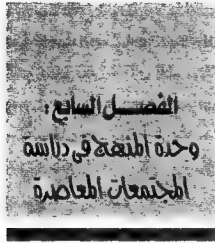 الفصل السابع:
وحدة المنهج فى دراسة
المجتمعات المعاصرة